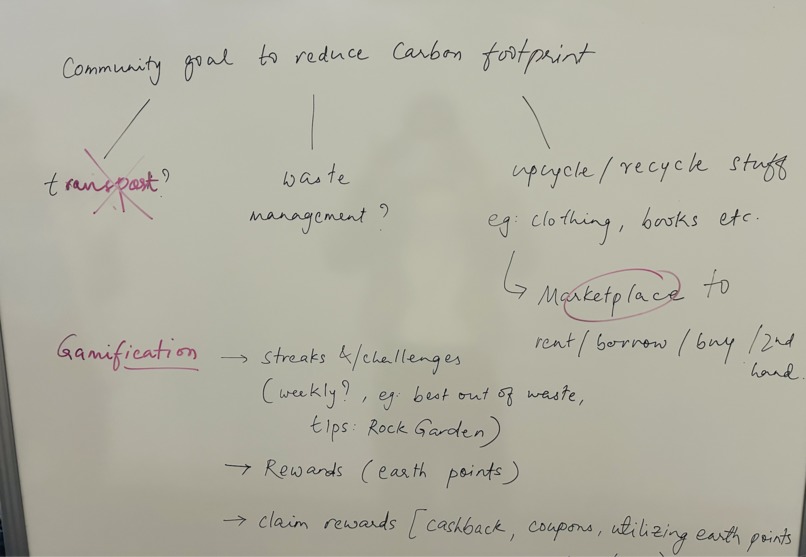 Community goal to reduce Carbon footprint
transport?
waste
management?
upcycle/recycle stuff
eg: clothing, books etc.
Marketplace to
rent/borrow/buy/2nd
hand.
Gamification
→ streaks &/challenges
(weekly?, eg: best out of waste,
tips: Rock Garden)
→ Rewards (earth points)
→ claim rewards [cashback, coupons, utilizing earth points